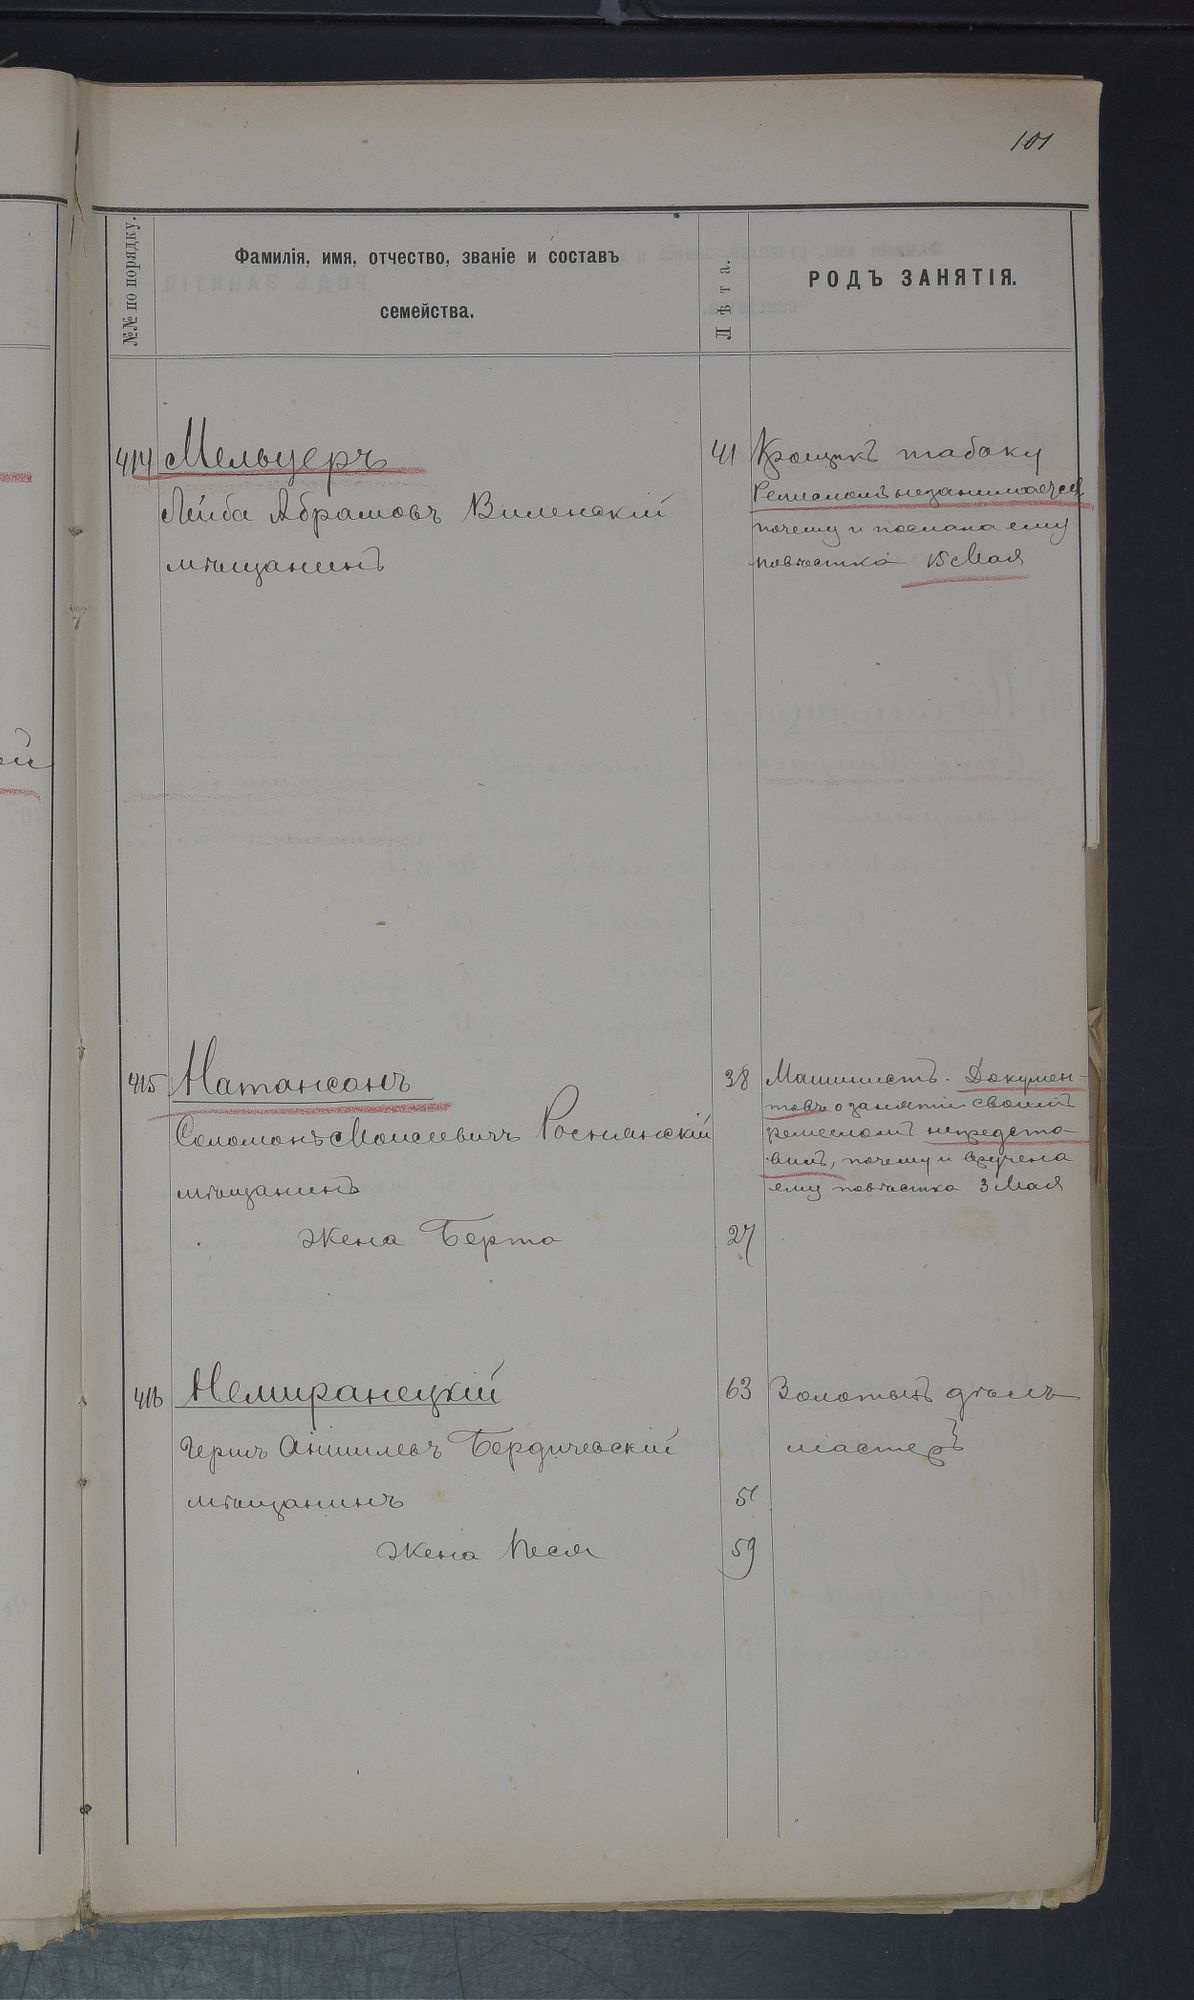 101
№№ по порядку.
Фамилія, имя, отчество, званіе и составъ
семейства.
Лѣта.
РОДЪ ЗАНЯТІЯ.
414 Мельцеръ 41 Крощикъ табаку
Лейба Абрамовъ Виленскій Ремесломъ незанимается
мѣщанинъ почему и послана ему
повѣстка 15 Мая
415 Натансонъ 38 Машинистъ. Докумен-
товъ о занятіи своимъ
Соломонъ Моисеевичъ Росіянскій ремесломъ непредста-
вилъ, почему и вручена
мѣщанинъ ему повѣстка 3 Мая
Жена Берта 27
416 Немиранецкій 63 Золотыхъ дѣлъ
Гершъ Аншилевъ Бердичевскій мастеръ
мѣщанинъ
Жена Песя 59
ей